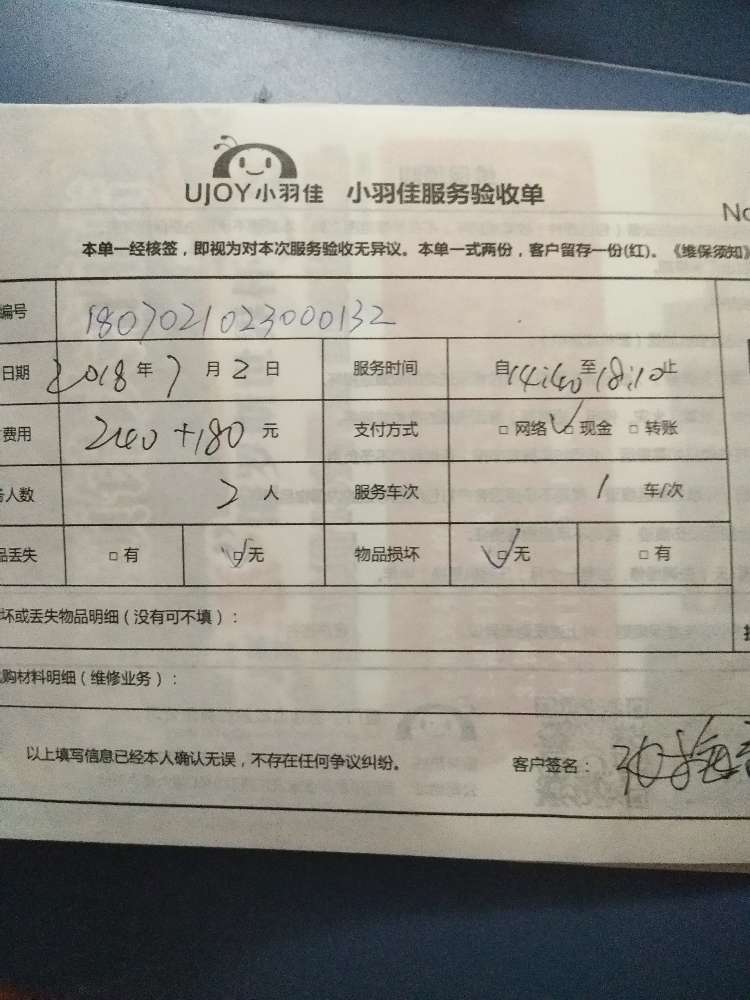 UJOY小羽佳 小羽佳服务验收单
No
本单一经核签，即视为对本次服务验收无异议。本单一式两份，客户留存一份(红)。《维保须知》
编号 1807021023000132
日期 2018年7月2日 服务时间 自14:40至18:10止
费用 240+180元 支付方式 □网络 ☑现金 □转账
人数 2人 服务车次 1车/次
品丢失 □有 ☑无 物品损坏 ☑无 □有
坏或丢失物品明细（没有可不填）：
购材料明细（维修业务）：
以上填写信息已经本人确认无误，不存在任何争议纠纷。 客户签名：